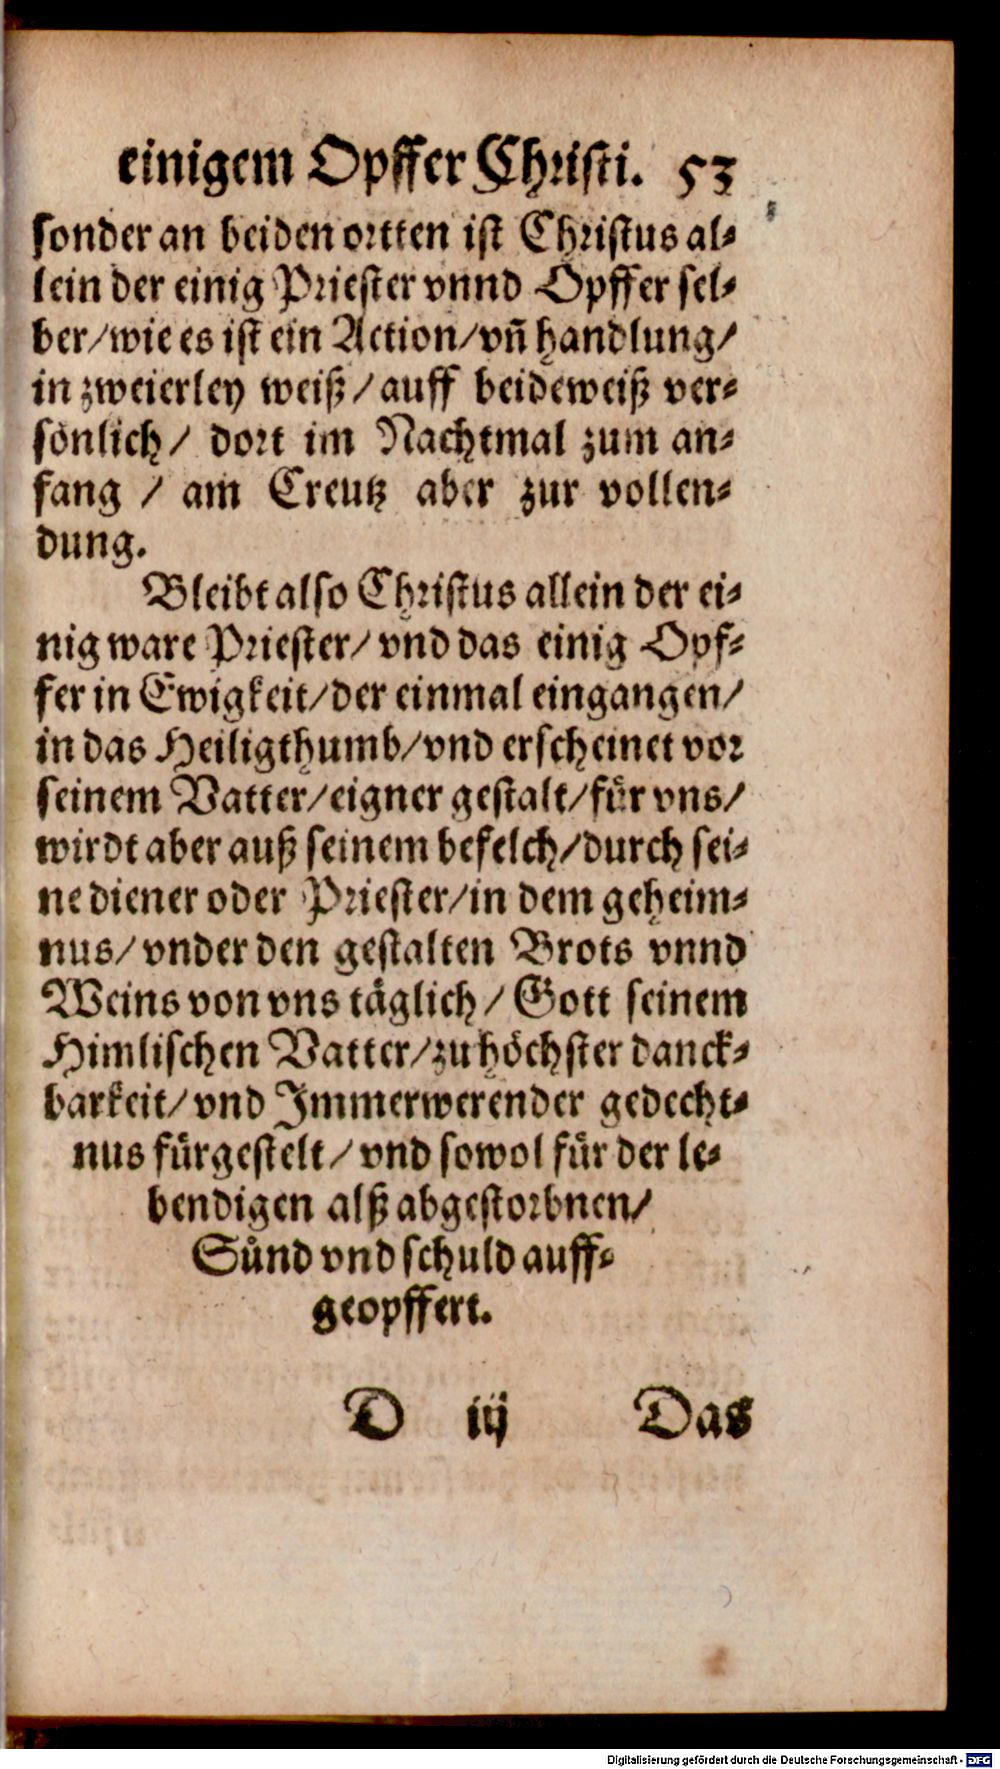 einigem Opffer Christi. 53
sonder an beiden ortten ist Christus al⸗
lein der einig Priester vnnd Opffer sel⸗
ber/wie es ist ein Action/vñ handlung/
in zweierley weiß/auff beideweiß ver⸗
sönlich/ dort im Nachtmal zum an⸗
fang / am Creutz aber zur vollen⸗
dung.
Bleibt also Christus allein der ei⸗
nig ware Priester/vnd das einig Opf⸗
fer in Ewigkeit/der einmal eingangen/
in das Heiligthumb/vnd erscheinet vor
seinem Vatter/eigner gestalt/für vns/
wirdt aber auß seinem befelch/durch sei⸗
ne diener oder Priester/in dem geheim⸗
nus/vnder den gestalten Brots vnnd
Weins von vns täglich/Gott seinem
Himlischen Vatter/zu höchster danck⸗
barkeit/vnd Jmmerwerender gedecht⸗
nus fürgestelt/vnd sowol für der le⸗
bendigen alß abgestorbnen/
Sünd vnd schuld auff⸗
geopffert.
D iij Das
Digitalisierung gefördert durch die Deutsche Forschungsgemeinschaft - DFG